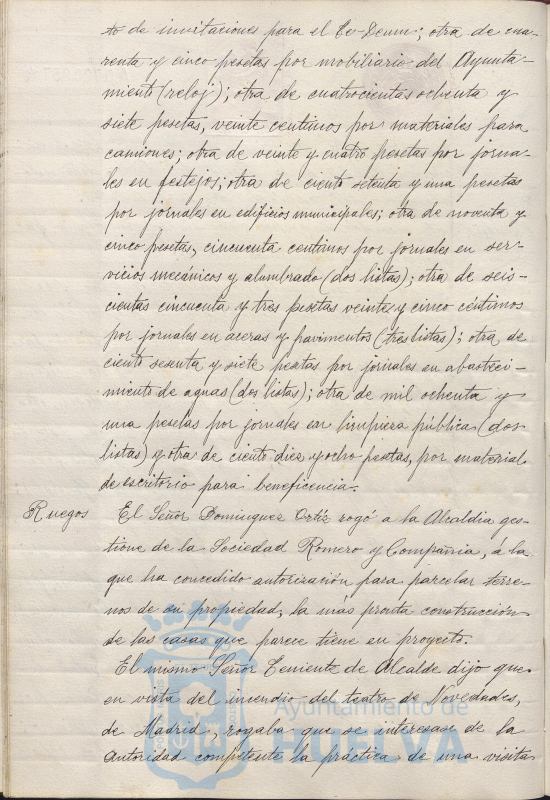 to de invitaciones para el Te-Deum; otra de cua-
renta y cinco pesetas por mobiliario del Ayunta-
miento (reloj); otra de cuatrocientas ochenta y
siete pesetas, veinte centimos por materiales para
camiones; otra de veinte y cuatro pesetas por jorna-
les en festejos; otra de ciento setenta y una pesetas
por jornales en edificios municipales; otra de noventa y
cinco pesetas, cincuenta centimos por jornales en ser-
vicios mecánicos y alumbrado (dos listas); otra de seis-
cientas cincuenta y tres pesetas veinte y cinco centimos
por jornales en aceras y pavimentos (tres listas); otra de
ciento sesenta y siete pesetas por jornales en abasteci-
miento de aguas (dos listas); otra de mil ochenta y
una pesetas por jornales en limpieza pública (dos
listas) y otra de ciento diez y ocho pesetas, por material
de escritorio para beneficencia.
Ruegos El Señor Dominguez Ortíz rogó a la Alcaldia ges-
tione de la Sociedad Romero y Compañia, á la
que ha concedido autorización para parcelar terre-
nos de su propiedad, la más pronta construcción
de las casas que parece tiene en proyecto.
El mismo Señor Teniente de Alcalde dijo que
en vista del incendio del teatro de Novedades,
de Madrid, rogaba que se interesase de la
autoridad competente la práctica de una visita
Ayuntamiento de
HUELVA